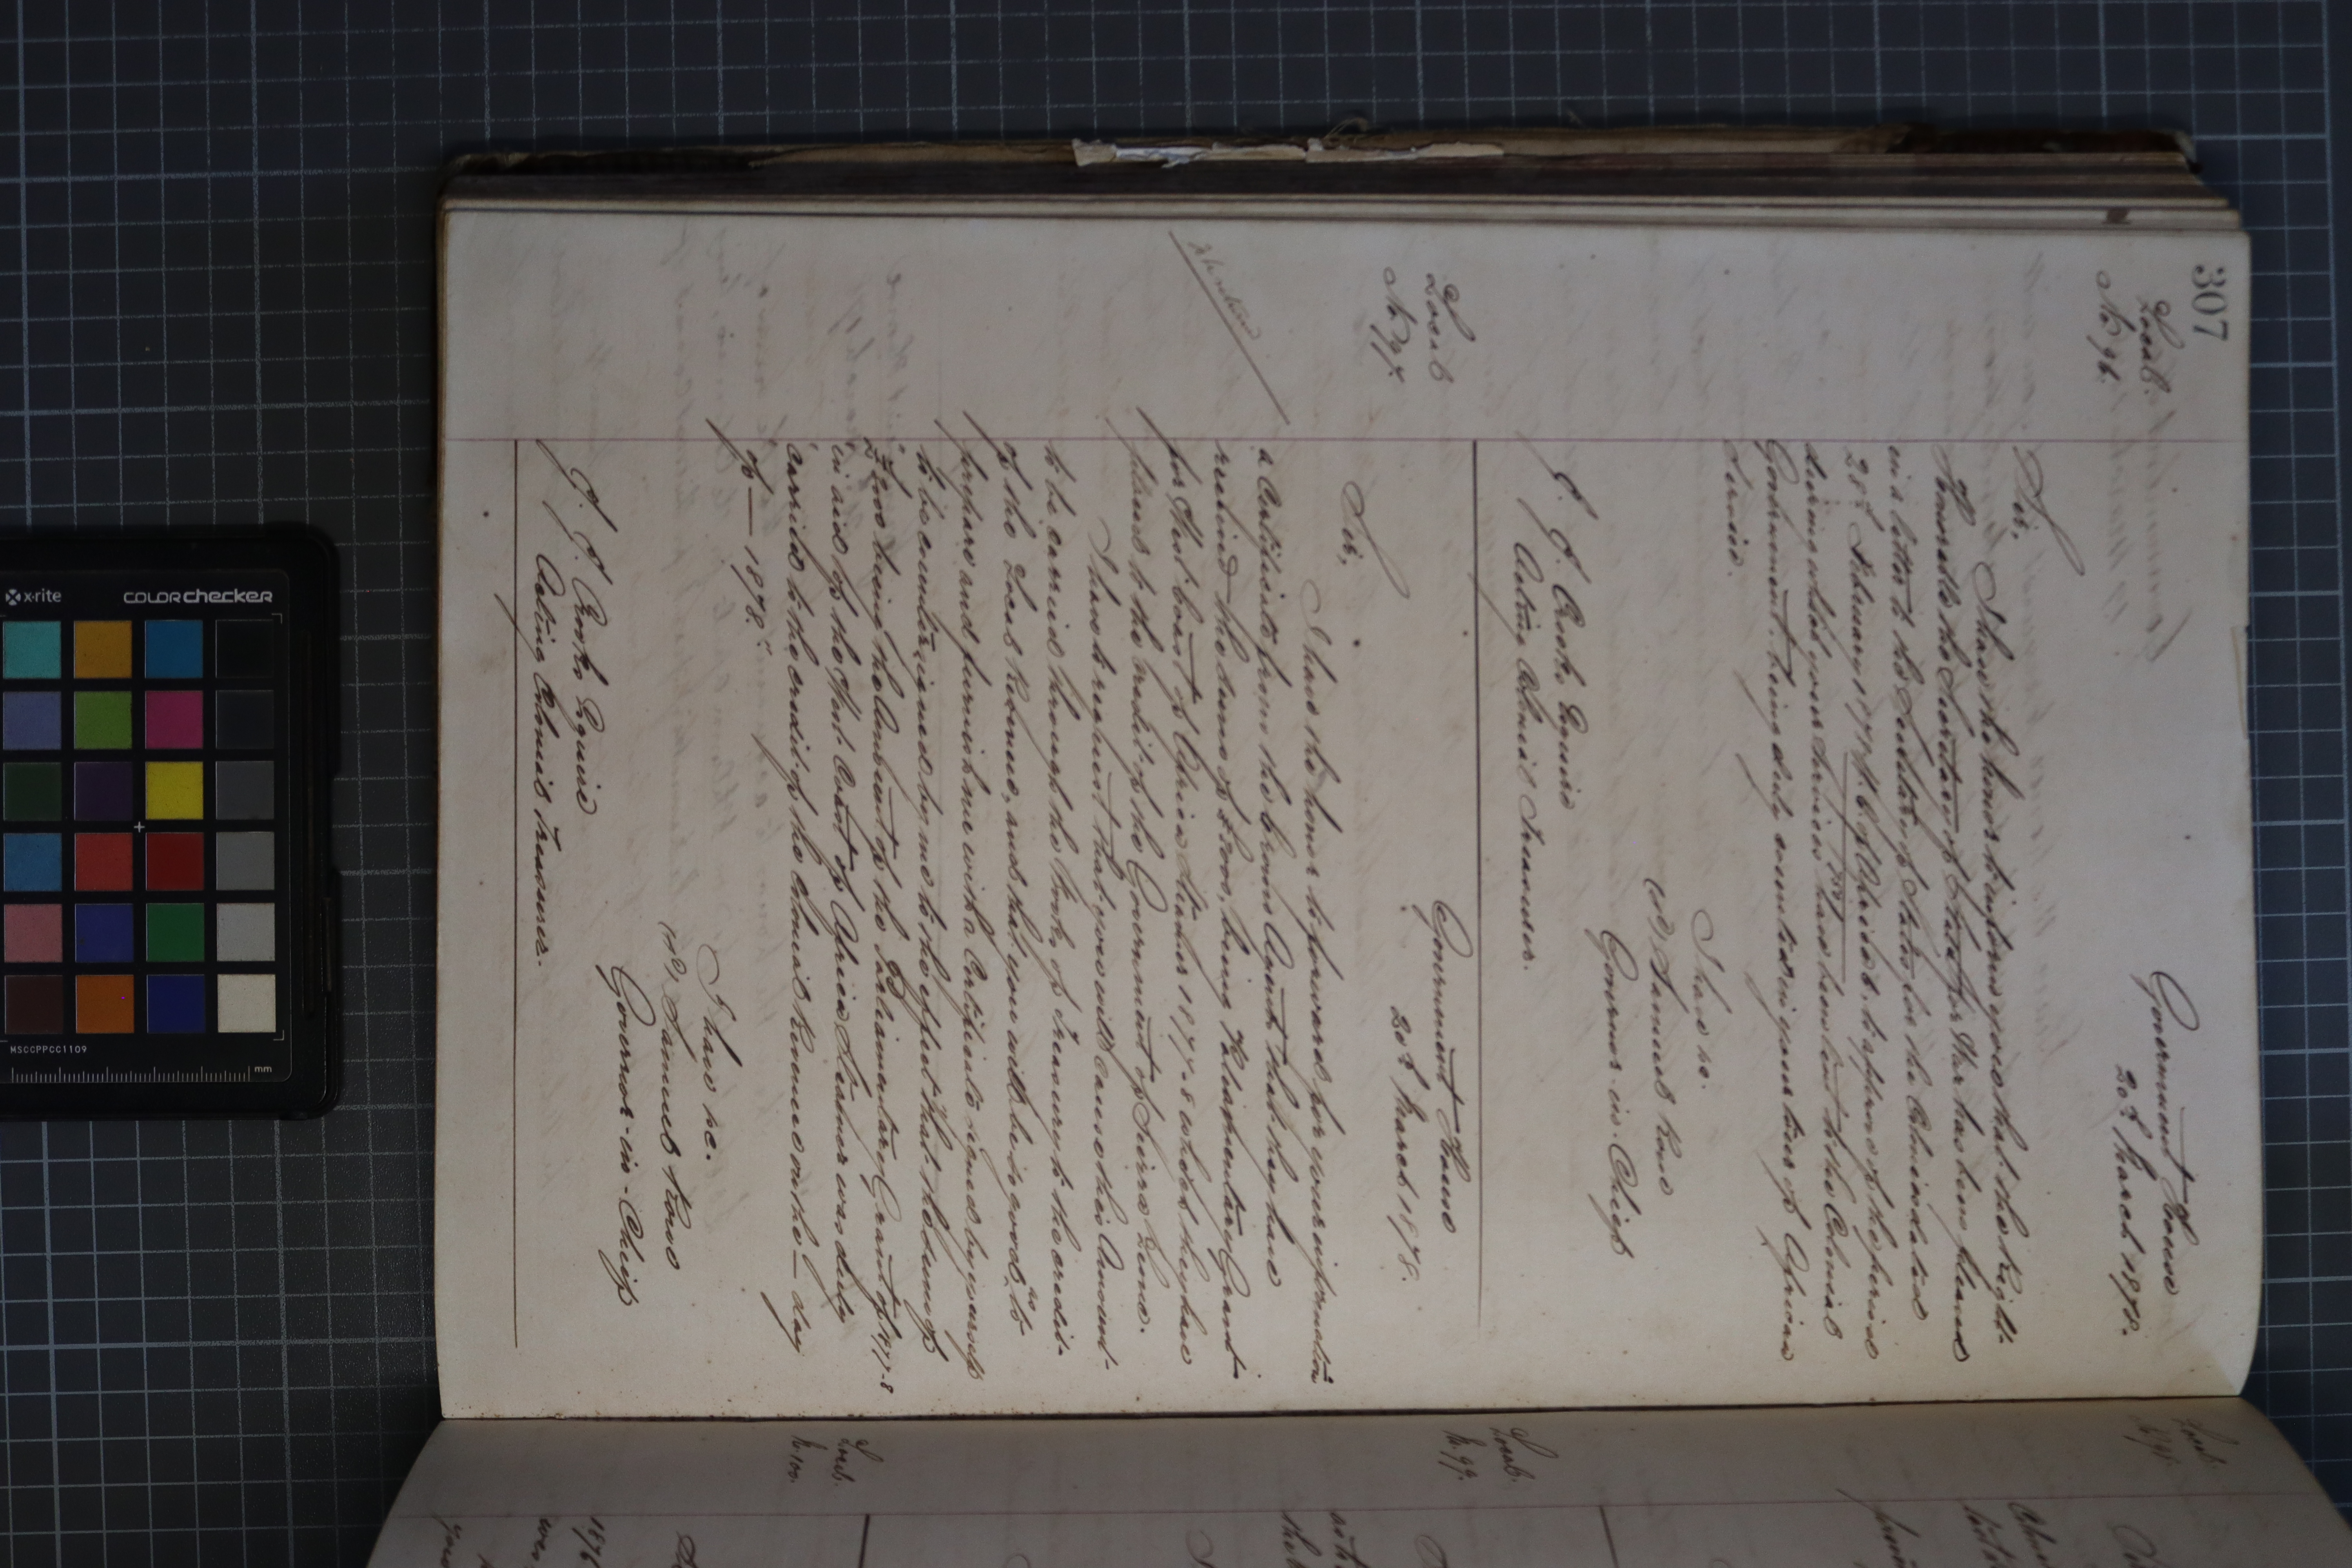 307
Local.
No 96.
Government House
20th March 1878.
Sir,
I have the honor to inform you that the Right
Honorable the Secretary of State for War has been pleased
in a letter to the Secretary of State for the Colonies dated
25th February 1878 to approve of the period
during which your services have been lent to the Colonial
Government, being duly counted in your time of African
Service.
I have &c.
(sd) Samuel Rowe
Governor-in-Chief
J. J. Crooks Esquire
Acting Colonial Treasurer.
Local
No 97.
Government House
20th March 1878.
Sir,
I have the honor to forward for your information
a Certificate from the Crown Agents that they have
received the sum of £7000, being Parliamentary Grant
for West Coast of Africa Steamer 1877-8 which they have
placed to the credit of the Government of Sierra Leone.
I have to request that you will cause this Amount
to be carried through the books of Treasury to the credit
of the Local Revenue, and that you will be so good as to
prepare and furnish me with a Certificate signed by yourself
to be countersigned by me to the effect that the sum of
£7000 being the Amount of the Parliamentary Grant of 1877-8
in aid of the West Coast of Africa Steamer was duly
carried to the credit of the Colonial Revenue on the — day
of — 1878.
I have &c.
(sd) Samuel Rowe
Governor-in-Chief
J. J. Crooks Esquire
Acting Colonial Treasurer.
Local.
No 99.
Local.
No 100.
x-rite
colorchecker
MSCCPPCC1109
mm